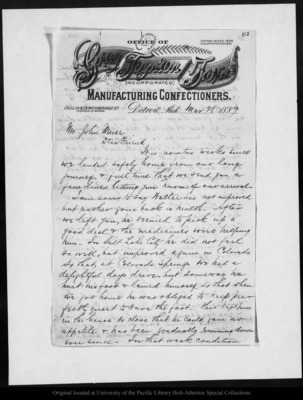 OFFICE OF
ESTABLISHED
Gray, Toynton & Fox
INCORPORATED
MANUFACTURING CONFECTIONERS.
Detroit, Mich. Mar 28 1889
Mr John Muir
Dear Friend
It is now two weeks since
we landed safely home from our long
journey & full time that we send you a
few lines letting you know of our arrival.
I am sorry to say Walter has not improved
but rather gone back in health. After
we left you, he seemed to pick up a
good deal & the medicines were helping
him. In Salt Lake City he did not feel
so well, but improved again in Colorado
so that at Colorado Springs we had a
delightful days drive but someway he
hurt his foot & lamed himself so that when
we got home he was obliged to keep per-
fectly quiet to save the foot. This kept him
in the house so close that he could gain no
appetite & has been gradually running down
ever since. In that weak condition
Original located at University of the Pacific Library Holt-Atherton Special Collections